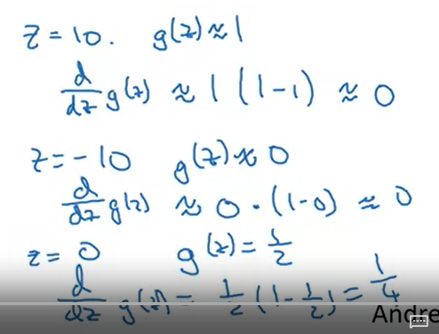 z = 10. g(z) ≈ 1
d/dz g(z) ≈ 1 (1-1) ≈ 0
z = -10 g(z) ≈ 0
d/dz g(z) ≈ 0 · (1-0) ≈ 0
z = 0 g(z) = 1/2
d/dz g(z) = 1/2 (1 - 1/2) = 1/4
Andre